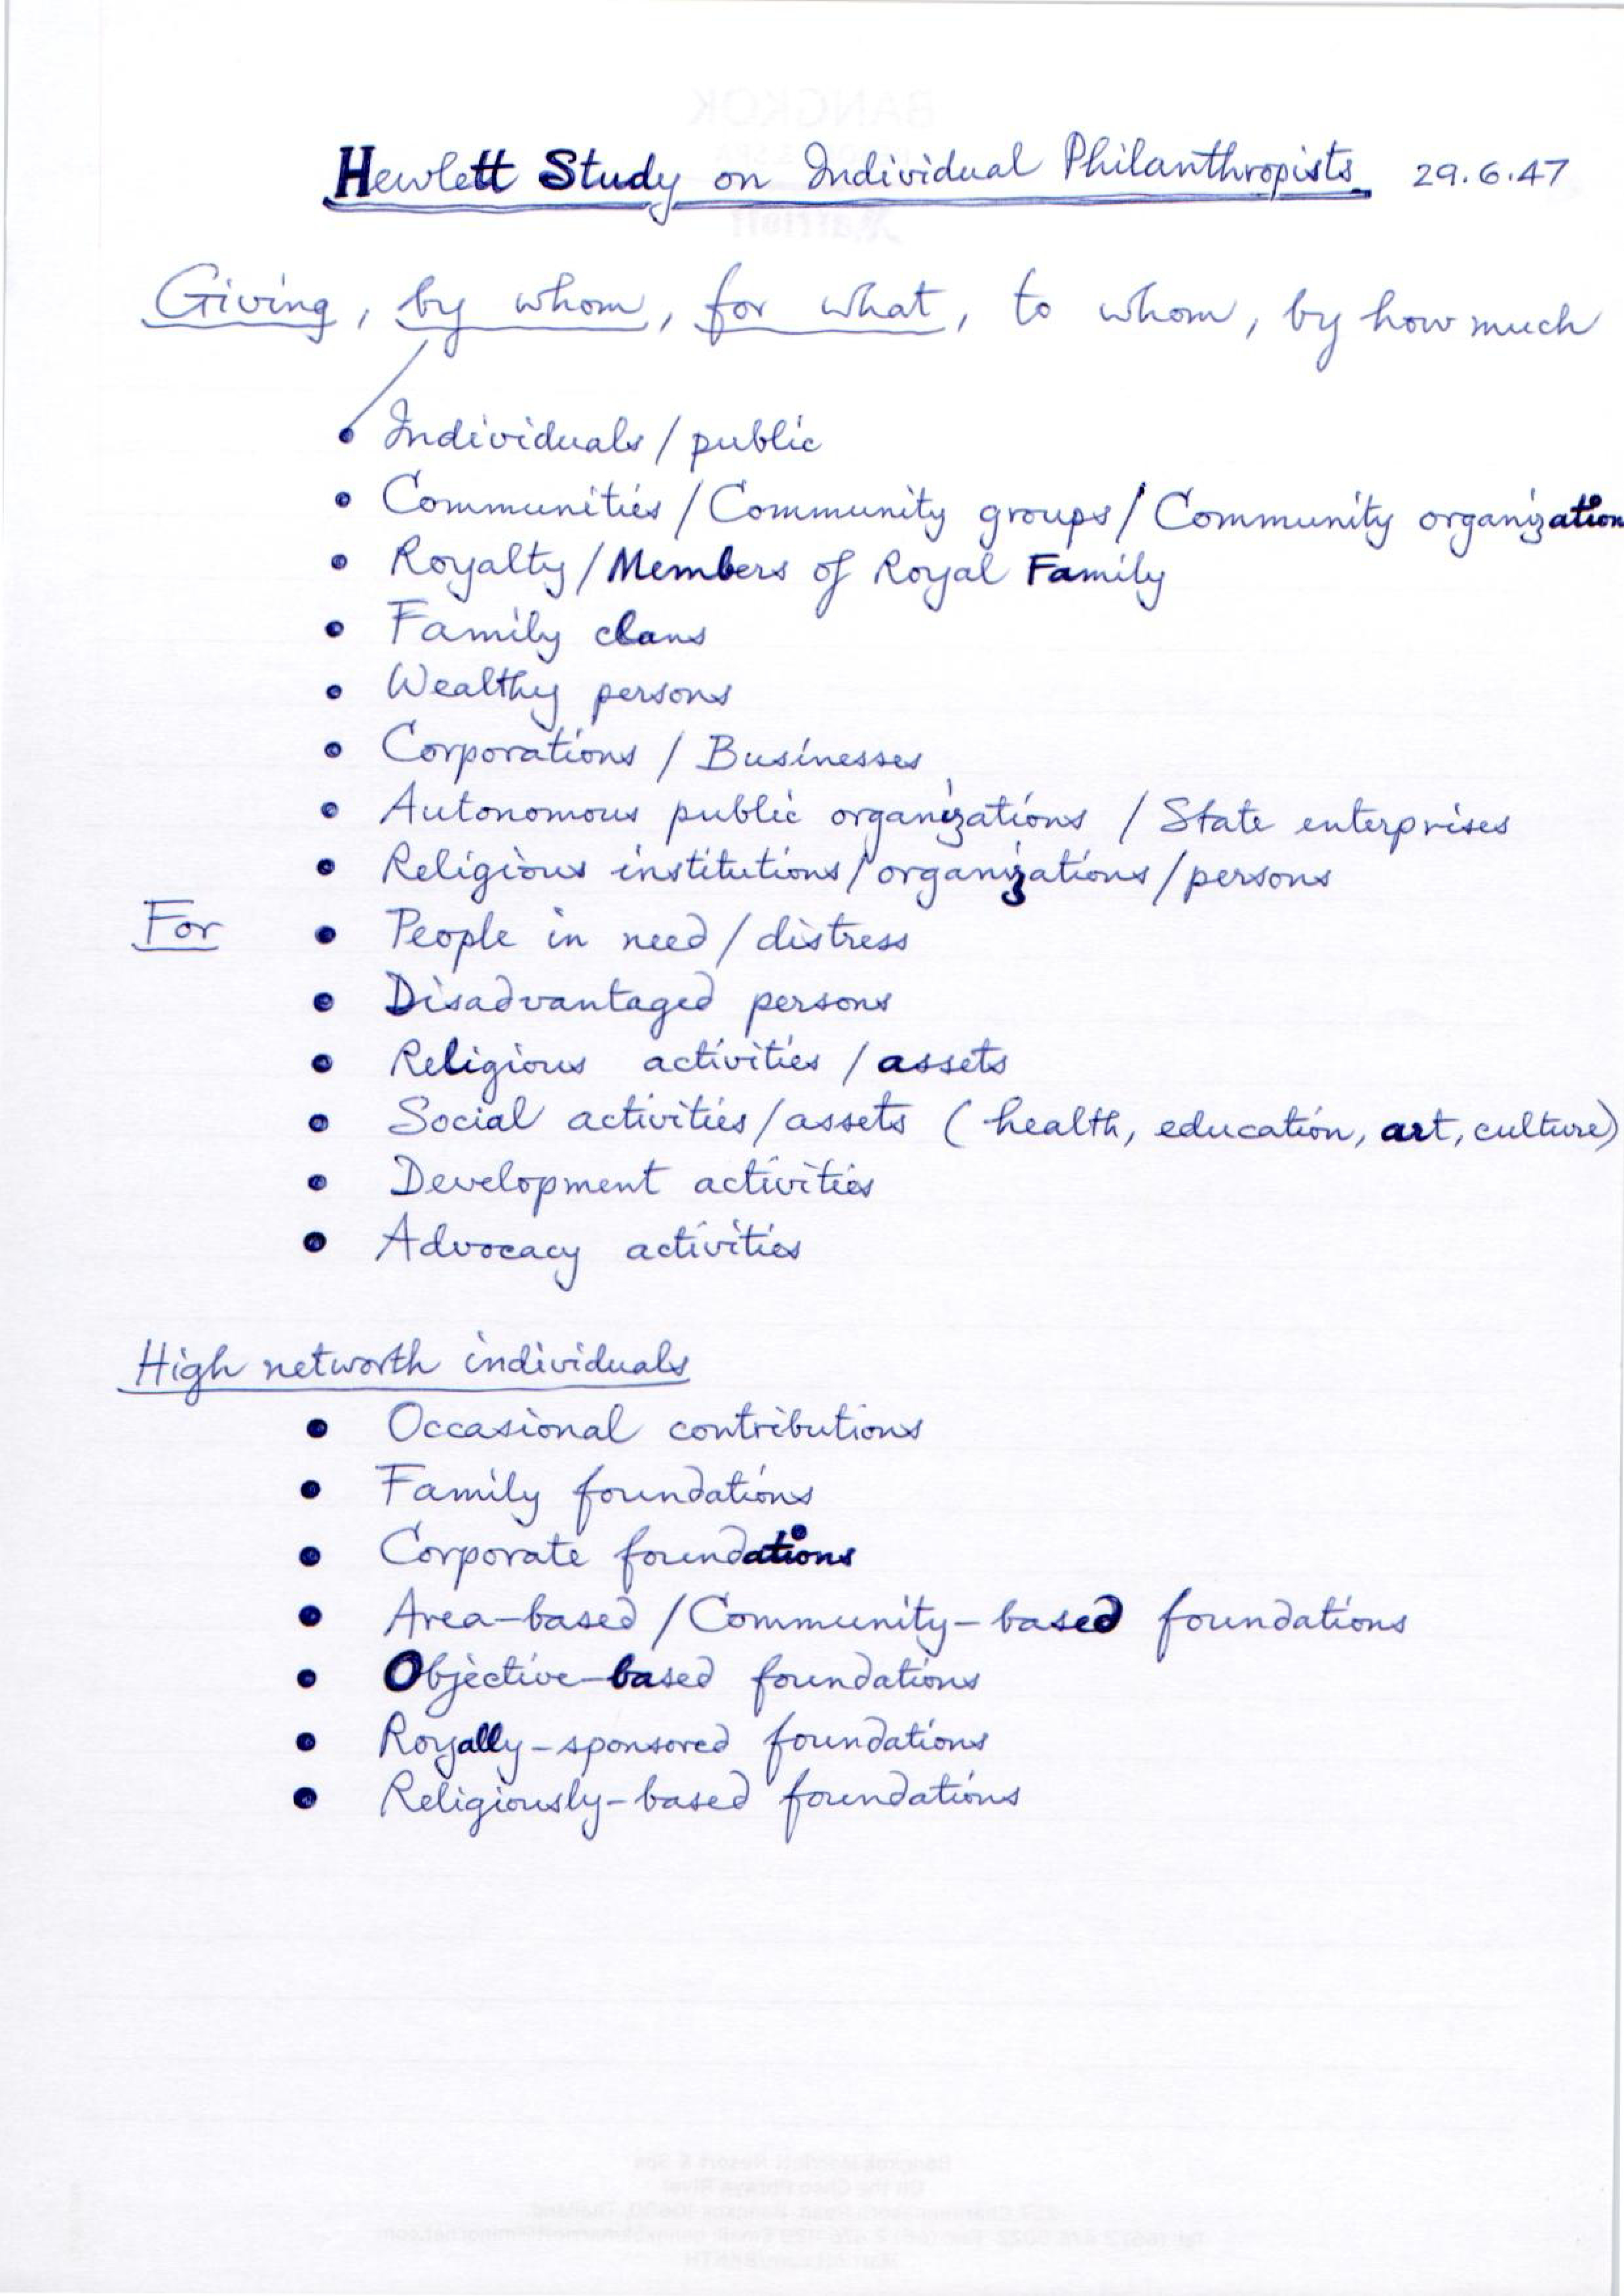 Hewlett Study on Individual Philanthropists 29.6.47
Giving, by whom, for what, to whom, by how much
• Individuals / public
• Communities / Community groups / Community organization
• Royalty / Members of Royal Family
• Family clans
• Wealthy persons
• Corporations / Businesses
• Autonomous public organizations / State enterprises
• Religious institutions / organizations / persons
For • People in need / distress
• Disadvantaged persons
• Religious activities / assets
• Social activities / assets (health, education, art, culture)
• Development activities
• Advocacy activities
High networth individuals
• Occasional contributions
• Family foundations
• Corporate foundations
• Area-based / Community-based foundations
• Objective-based foundations
• Royally-sponsored foundations
• Religiously-based foundations